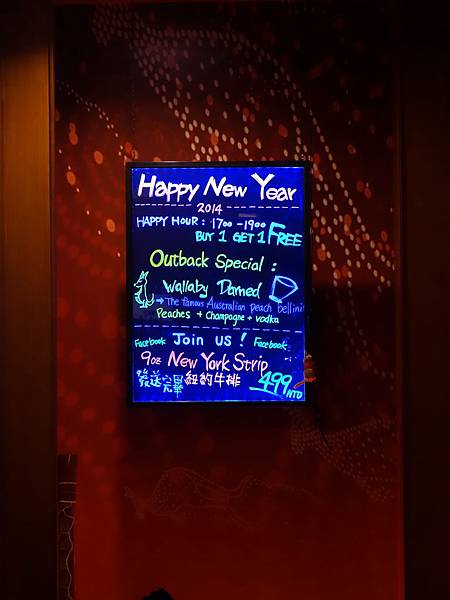 Happy New Year
2014
HAPPY HOUR : 1700 - 1900
BUY 1 GET 1 FREE
Outback Special :
Wallaby Darned
→ The famous Australian peach bellini
Peaches + Champagne + vodka
Facebook Join US ! Facebook
9oz New York Strip
發送完畢 紐約牛排 499 NTD